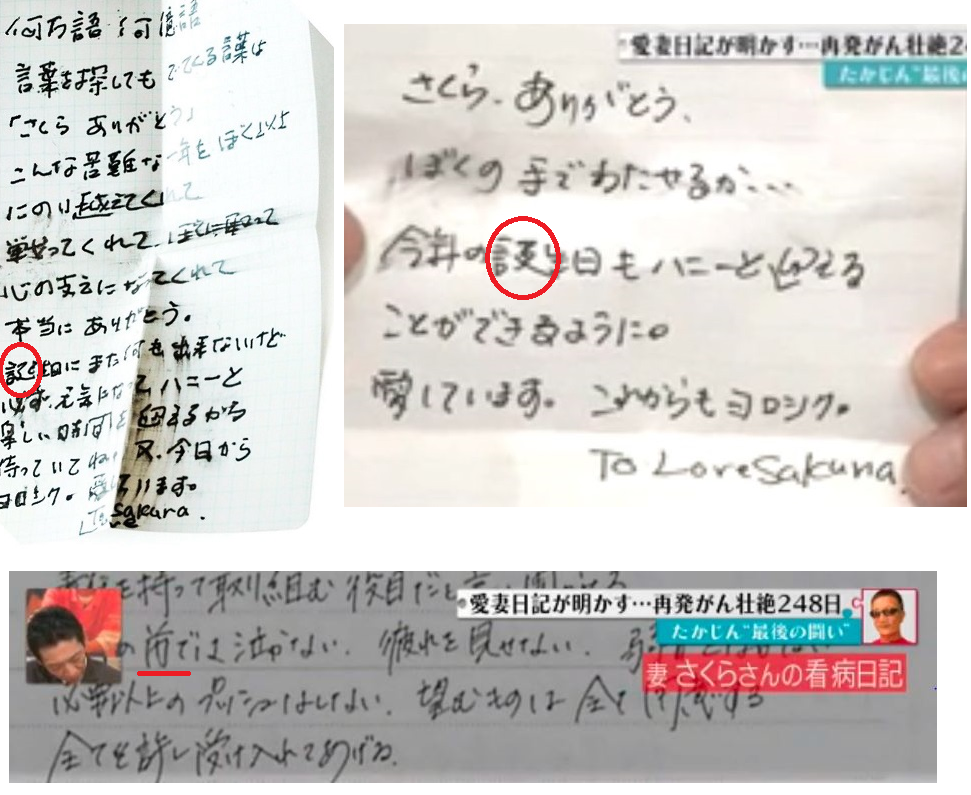 何万語 何億語
言葉を探しても でてくる言葉は
「さくら ありがとう」
こんな苦難な一年をぼく以上
にのり越えてくれて
戦ってくれて、
心の支えになってくれて
本当に ありがとう。
誕生日にまた何も出来ないけど
必ず、元気になって ハニーと
楽しい時間を迎えるから
待っていてね。又、今日から
ヨロシク。愛しています。
To sakura.
愛妻日記が明かす…再発がん壮絶2
たかじん“最後の
さくら、ありがとう、
ぼくの手でわたせるか…
今年の誕生日もハニーと迎える
ことができるように。
愛しています。これからもヨロシク。
To Love Sakura.
を持って取り組む役目だと
愛妻日記が明かす…再発がん壮絶248日
たかじん“最後の闘い”
の前では泣かない。疲れを見せない。
妻 さくらさんの看病日記
必要以上のプッシュはしない。望むものは全て
全てを許し受け入れてあげる。